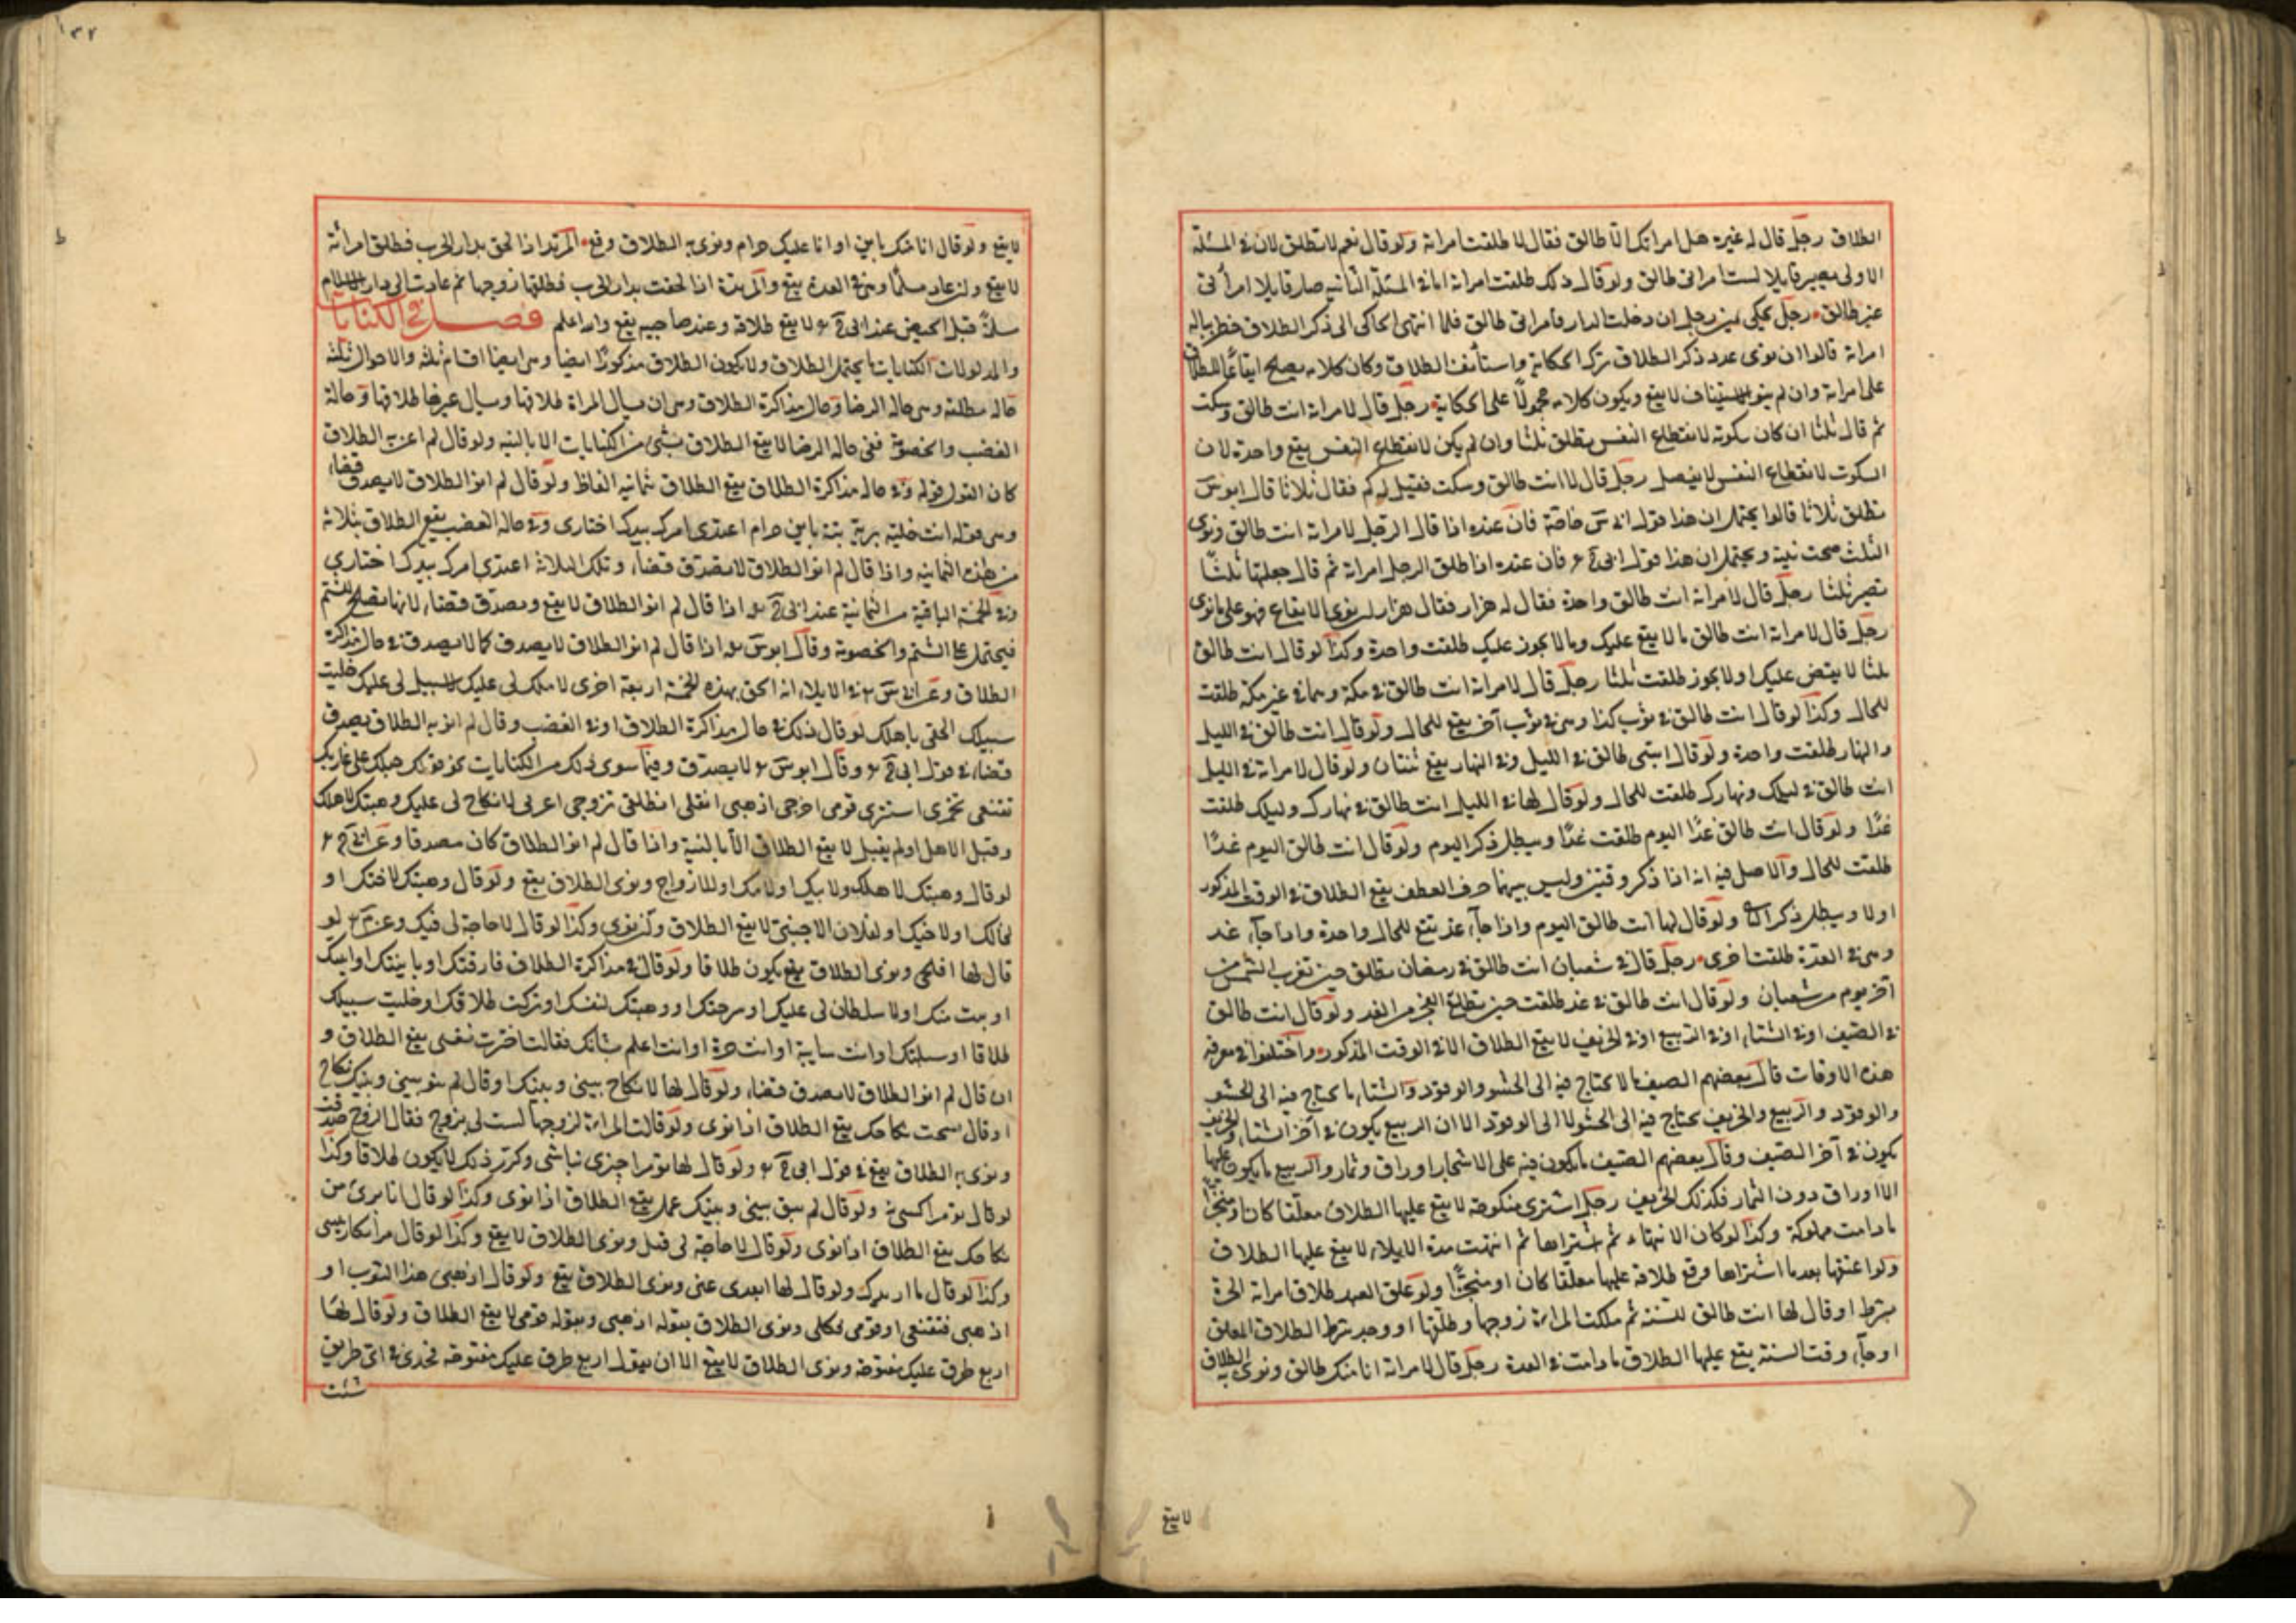 الطلاق رجل قال له غيره هل امراتك الا طالق فقال لا طلقت امراته ولو قال نعم لا تطلق لان في المسئلة
الاولى يصير قايلا لست امراتي طالق ولو قال ذلك طلقت امراته اما في المسئلة الثانيه صار قايلا امراتي
غير طالق رجل يحكي يمين رجل ان دخلت الدار فامراتي طالق فلما انتهى الحاكي الى ذكر الطلاق خطر بباله
امراته قالوا ان نوى عند ذكر الطلاق ترك الحكاية واستأنف الطلاق وكان كلامه يصلح ايقاعًا للطلاق
على امراته وان لم ينو الاستيناف لا يقع ويكون كلامه محمولًا على الحكاية رجل قال لامراته انت طالق وسكت
ثم قال ثلثا ان كان سكوته لانقطاع النفس يطلق ثلثا وان لم يكن لانقطاع النفس يقع واحدة لان
السكوت لانقطاع النفس لا يفصل رجل قال لا انت طالق وسكت فقيل له كم فقال ثلاثا قال ابو س
تطلق ثلاثا قالوا يحتمل ان هذا قول ابي س خاصة فان عنده اذا قال الرجل لامراته انت طالق ونوى
الثلث صحت نيته ويحتمل ان هذا قول ابي ح فان عنده اذا طلق الرجل امراته ثم قال جعلتها ثلثًا
تصير ثلثا رجل قال لامراته انت طالق واحدة فقال له هزار فقال هزار ان نوى الايقاع فهو على ما نوى
رجل قال لامراته انت طالق ما لا يقع عليك وما لا يجوز عليك طلقت واحدة وكذا لو قال انت طالق
ثلثا لا يقض عليك او لا يجوز طلقت ثلثا رجل قال لامراته انت طالق في مكة وهما في غير مكة طلقت
للحال وكذا لو قال انت طالق في ثوب كذا وهي في ثوب آخر يقع للحال ولو قال انت طالق في الليل
والنهار طلقت واحدة ولو قال انتي طالق في الليل وفي النهار يقع ثنتان ولو قال لامراته في الليل
انت طالق في ليلك ونهارك طلقت للحال ولو قال لها في الليل انت طالق في نهارك وليلك طلقت
غدًا ولو قال انت طالق غدًا اليوم طلقت غدًا ويبطل ذكر اليوم ولو قال انت طالق اليوم غدًا
طلقت للحال والاصل فيه انه اذا ذكر وقتين وليس بينهما حرف العطف يقع الطلاق في الوقت المذكور
اولا ويبطل ذكر ولو قال لها انت طالق اليوم واذا جاء غد تقع للحال واحدة واذا جاء غد
وهي في العدة طلقت اخرى رجل قال في شعبان انت طالق في رمضان تطلق حين تغرب الشمس من
آخر يوم من شعبان ولو قال انت طالق في غد طلقت حين يطلع الفجر من الغد ولو قال انت طالق
في الصيف او في الشتاء او في الربيع او في الخريف لا يقع الطلاق الا في الوقت المذكور واختلفوا في معرفة
هذه الاوقات قال بعضهم الصيف ما لا يحتاج فيه الى الحشو والوقود والشتاء ما يحتاج فيه الى الحشو
والوقود والربيع والخريف يحتاج فيه الى الحشو لا الى الوقود الا ان الربيع يكون في آخر الشتاء والخريف
يكون في آخر الصيف وقال بعضهم الصيف ما يكون فيه على الاشجار اوراق وثمار والربيع ما يكون عليها
الا اوراق دون الثمار فكذلك الخريف رجل اشترى منكوحته لا يقع عليها الطلاق معلقا كان او منجزا
ما دامت مملوكة وكذا لو كان الانتهاء ثم اشتراها ثم انتهت مدة الايلاء لا يقع عليها الطلاق
ولو اعتقها بعد ما اشتراها وقع طلاقه عليها معلقا كان او منجزًا ولو علق العبد طلاق امراته الحرة
بشرط او قال لها انت طالق للسنة ثم ملكت المراة زوجها وطلقها او وجد شرط الطلاق المعلق
او جاء وقت السنة يقع عليها الطلاق ما دامت في العدة رجل قال لامراته انا منك طالق ونوى الطلاق
لا يقع
١٣٢
لا يقع ولو قال انا منك باين او انا عليك حرام ونوى به الطلاق وقع المرتد اذا لحق بدار الحرب فطلق امراته
لا يقع وان عاد مسلمًا وهي في العدة يقع والمرتدة اذا لحقت بدار الحرب فطلقها زوجها ثم عادت الى دار الاسلام
مسلمة قبل الحيض عند ابي ح لا يقع طلاقه وعند صاحبيه يقع والله اعلم فصل في الكنايات
والمدلولات الكنايات ما يحتمل الطلاق ولا يكون الطلاق مذكورًا ايضا وهي ايضا اقسام ثلثة والاحوال ثلثة
حالة مطلقة وهي حالة الرضا وحال مذاكرة الطلاق وهي ان يسال المراة طلاقها او يسال غيرها طلاقها وحالة
الغضب والخصومة ففي حالة الرضا لا يقع الطلاق بشئ من الكنايات الا بالنيه ولو قال لم اعن به الطلاق
كان القول قوله وفي حالة مذاكرة الطلاق يقع الطلاق بثمانيه الفاظ ولو قال لم انو الطلاق لا يصدق قضاء
وهي قوله انت خلية برية بتة باين حرام اعتدي امرك بيدك اختاري وفي حالة الغضب يقع الطلاق بثلاثة
من هذه الثمانيه واذا قال لم انو الطلاق لا يصدق قضاء وتلك الثلاثة اعتدي امرك بيدك اختاري
وفي الخمسة الباقية من الثمانية عند ابي ح اذا قال لم انو الطلاق لا يقع ويصدق قضاء لانها تصلح للشتم
فيحتمل على الشتم والخصومة وقال ابو س اذا قال لم انو الطلاق لا يصدق كما لا يصدق في حال مذاكرة
الطلاق وعن ابي س في الاملاء انه الحق بهذه الخمسة اربعة اخرى لا ملك لي عليك لا سبيل لي عليك خليت
سبيلك الحقي باهلك لو قال ذلك في حال مذاكرة الطلاق او في الغضب وقال لم انو به الطلاق يصدق
قضاء في قول ابي ح وقال ابو س لا يصدق وفيما سوى ذلك من الكنايات نحو قوله حبلك على غاربك
تقنعي تخمري استتري قومي اخرجي اذهبي انتقلي انطلقي تزوجي اعزبي لا نكاح لي عليك وهبتك لاهلك
وقبل الاهل او لم يقبل لا يقع الطلاق الا بالنية واذا قال لم انو الطلاق كان مصدقا وعن ابي ح
لو قال وهبتك لاهلك ولابيك او لامك او للازواج ونوى الطلاق يقع ولو قال وهبتك لاختك او
لخالك او لاخيك او لفلان الاجنبي لا يقع الطلاق وان نوى وكذا لو قال لا حاجة لي فيك وعن م لو
قال لها افلحي ونوى الطلاق يقع يكون طلاقا ولو قال في مذاكرة الطلاق فارقتك او باينتك او ابنتك
او بنت منك او لا سلطان لي عليك او سرحتك او وهبتك لنفسك او تركت طلاقك او خليت سبيلك
طلاقا او سبيلتك او انت سايبة او انت حرة او انت اعلم بشانك فقالت اخترت نفسي يقع الطلاق و
ان قال لم انو الطلاق لا يصدق قضاء ولو قال لها لا نكاح بيني وبينك او قال لم يبق بيني وبينك نكاح
او قال فسخت نكاحك يقع الطلاق اذا نوى ولو قالت المراة لزوجها لست لي بزوج فقال الزوج صدقت
ونوى به الطلاق يقع في قول ابي ح ولو قال لها تو مرا چيزى نباشى وكرر ذلك لا يكون طلاقا وكذا
لو قال تو مرا كسى نه ولو قال لم يبق بيني وبينك عمل يقع الطلاق اذا نوى وكذا لو قال انا برئ من
نكاحك يقع الطلاق اذا نوى ولو قال لا حاجة لي فيك ونوى الطلاق لا يقع وكذا لو قال مرا بكار نيستى
وكذا لو قال ما اريدك ولو قال لها ابعدي عني ونوى الطلاق يقع ولو قال اذهبي هذا الثوب او
اذهبي فتقنعي او قومي فكلي ونوى الطلاق بقوله اذهبي وبقوله قومي لا يقع الطلاق ولو قال لها
اربع طرق عليك مفتوحة ونوى الطلاق لا يقع الا ان يقول اربع طرق عليك مفتوحة فخذي في اي طريق
شئت